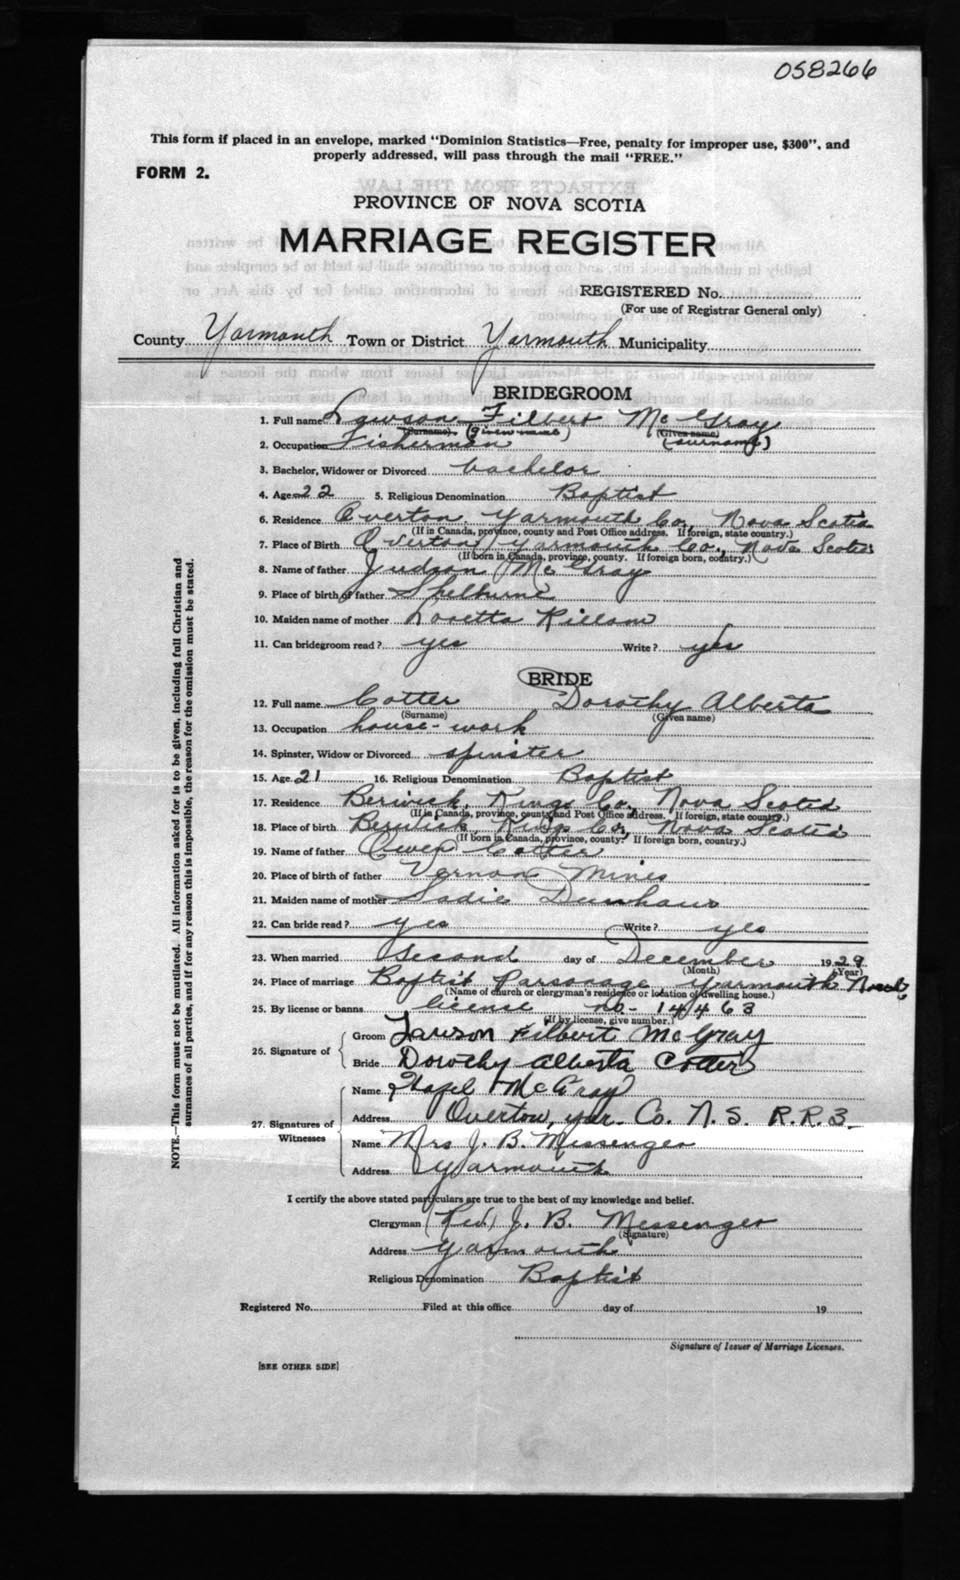 058266
This form if placed in an envelope, marked "Dominion Statistics—Free, penalty for improper use, $300", and
properly addressed, will pass through the mail "FREE."
FORM 2.
PROVINCE OF NOVA SCOTIA
MARRIAGE REGISTER
REGISTERED No.
(For use of Registrar General only)
County Yarmouth Town or District Yarmouth Municipality
BRIDEGROOM
1. Full name Lawson Filbert McGray
(Surname) (given name) (Given name) (surname)
2. Occupation Fisherman
3. Bachelor, Widower or Divorced bachelor
4. Age 22 5. Religious Denomination Baptist
6. Residence Overton, Yarmouth Co., Nova Scotia
(If in Canada, province, county and Post Office address. If foreign, state country.)
7. Place of Birth Overton, Yarmouth Co., Nova Scotia
(If born in Canada, province, county. If foreign born, country.)
8. Name of father Judson McGray
9. Place of birth of father Shelburne
10. Maiden name of mother Loretta Killam
11. Can bridegroom read? yes Write? yes
BRIDE
12. Full name Cotter Dorothy Alberta
(Surname) (Given name)
13. Occupation house-work
14. Spinster, Widow or Divorced spinster
15. Age 21 16. Religious Denomination Baptist
17. Residence Berwick, Kings Co., Nova Scotia
(If in Canada, province, county and Post Office address. If foreign, state country.)
18. Place of birth Berwick, Kings Co., Nova Scotia
(If born in Canada, province, county. If foreign born, country.)
19. Name of father Owen Cotter
20. Place of birth of father Vernon Mines
21. Maiden name of mother Sadie
22. Can bride read? yes Write? yes
23. When married Second day of December 1929
(Month) (Year)
24. Place of marriage Baptist Parsonage Yarmouth
(Name of church or clergyman's residence or location of dwelling house.)
25. By license or banns license no. 14463
(If by license, give number.)
26. Signature of
Groom Lawson Filbert McGray
Bride Dorothy Alberta Cotter
27. Signatures of Witnesses
Name Hazel McGray
Address Overton, Yar. Co. N.S. R.R.3.
Name Mrs J. B. Messenger
Address Yarmouth
I certify the above stated particulars are true to the best of my knowledge and belief.
Clergyman (Rev) J. B. Messenger
(Signature)
Address Yarmouth
Religious Denomination Baptist
Registered No. Filed at this office day of 19
Signature of Issuer of Marriage Licenses.
[SEE OTHER SIDE]
NOTE.—This form must not be mutilated. All information asked for is to be given, including full Christian and
surnames of all parties, and if for any reason this is impossible, the reason for the omission must be stated.